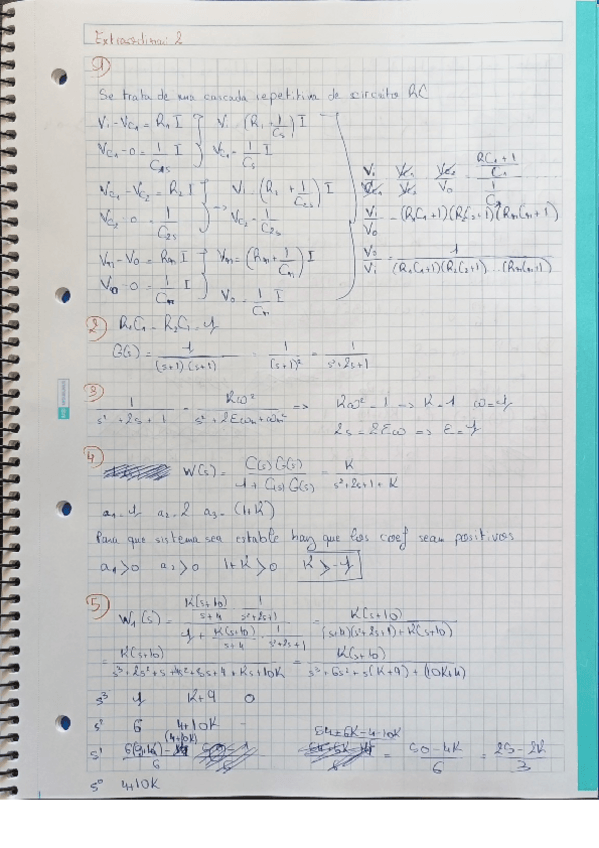 Extraordinaria 2
1)
Se trata de una cascada repetitiva de circuitos RC
Vi - VC1 = R1 I } Vi = (R1 + 1/C1s) I
VC1 - 0 = 1/C1s I } VC1 = 1/Cs I
VC1 - VC2 = R2 I } -> Vi = (R1 + 1/C2s) I
VC2 - 0 = 1/C2s } VC2 = 1/C2s
Vn1 - V0 = Rn I } Vn1 = (Rn + 1/Cn) I
V0 - 0 = 1/Cn I } V0 = 1/Cn I
Vi/V0 = (R1C1+1)(R2C2+1)(RnCn+1)
V0/Vi = 1/((R1C1+1)(R2C2+1)...(RnCn+1))
2) R1C1 = R2C2 = 1
G(s) = 1/((s+1)(s+1)) = 1/(s+1)² = 1/(s²+2s+1)
3) 1/(s²+2s+1) = Kω²/(s²+2Eωn+ωn²) => Kω² = 1 -> K=1 ω=1
2s = 2Eω => E=1
4) W(s) = C(s)G(s)/(1+C(s)G(s)) = K/(s²+2s+1+K)
a1=1 a2=2 a3=(1+K)
Para que sistema sea estable hay que los coef sean positivos
a1>0 a2>0 1+K>0 K>-1
5) W1(s) = (K(s+10)/(s+4) · 1/(s²+2s+1))/(1 + K(s+10)/(s+4) · 1/(s²+2s+1)) = K(s+10)/((s+4)(s²+2s+1)+K(s+10))
= K(s+10)/(s³+2s²+s+4s²+8s+4+Ks+10K) = K(s+10)/(s³+6s²+s(K+9)+(10K+4))
s³ 1 K+9 0
s² 6 4+10K -
s¹ 54+6K-4-10K/6 = 50-4K/6 = 25-2K/3
s⁰ 4+10K